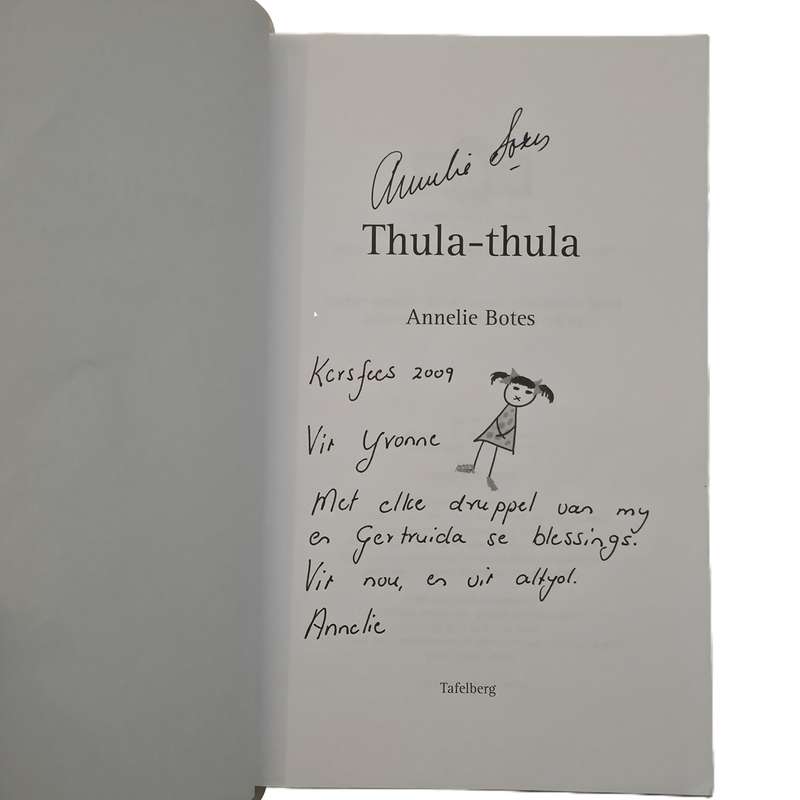 Annelie Botes
Thula-thula
Annelie Botes
Kersfees 2009
Vir Yvonne
Met elke druppel van my
en Gertruida se blessings.
Vir nou, en vir altyd.
Annelie
Tafelberg